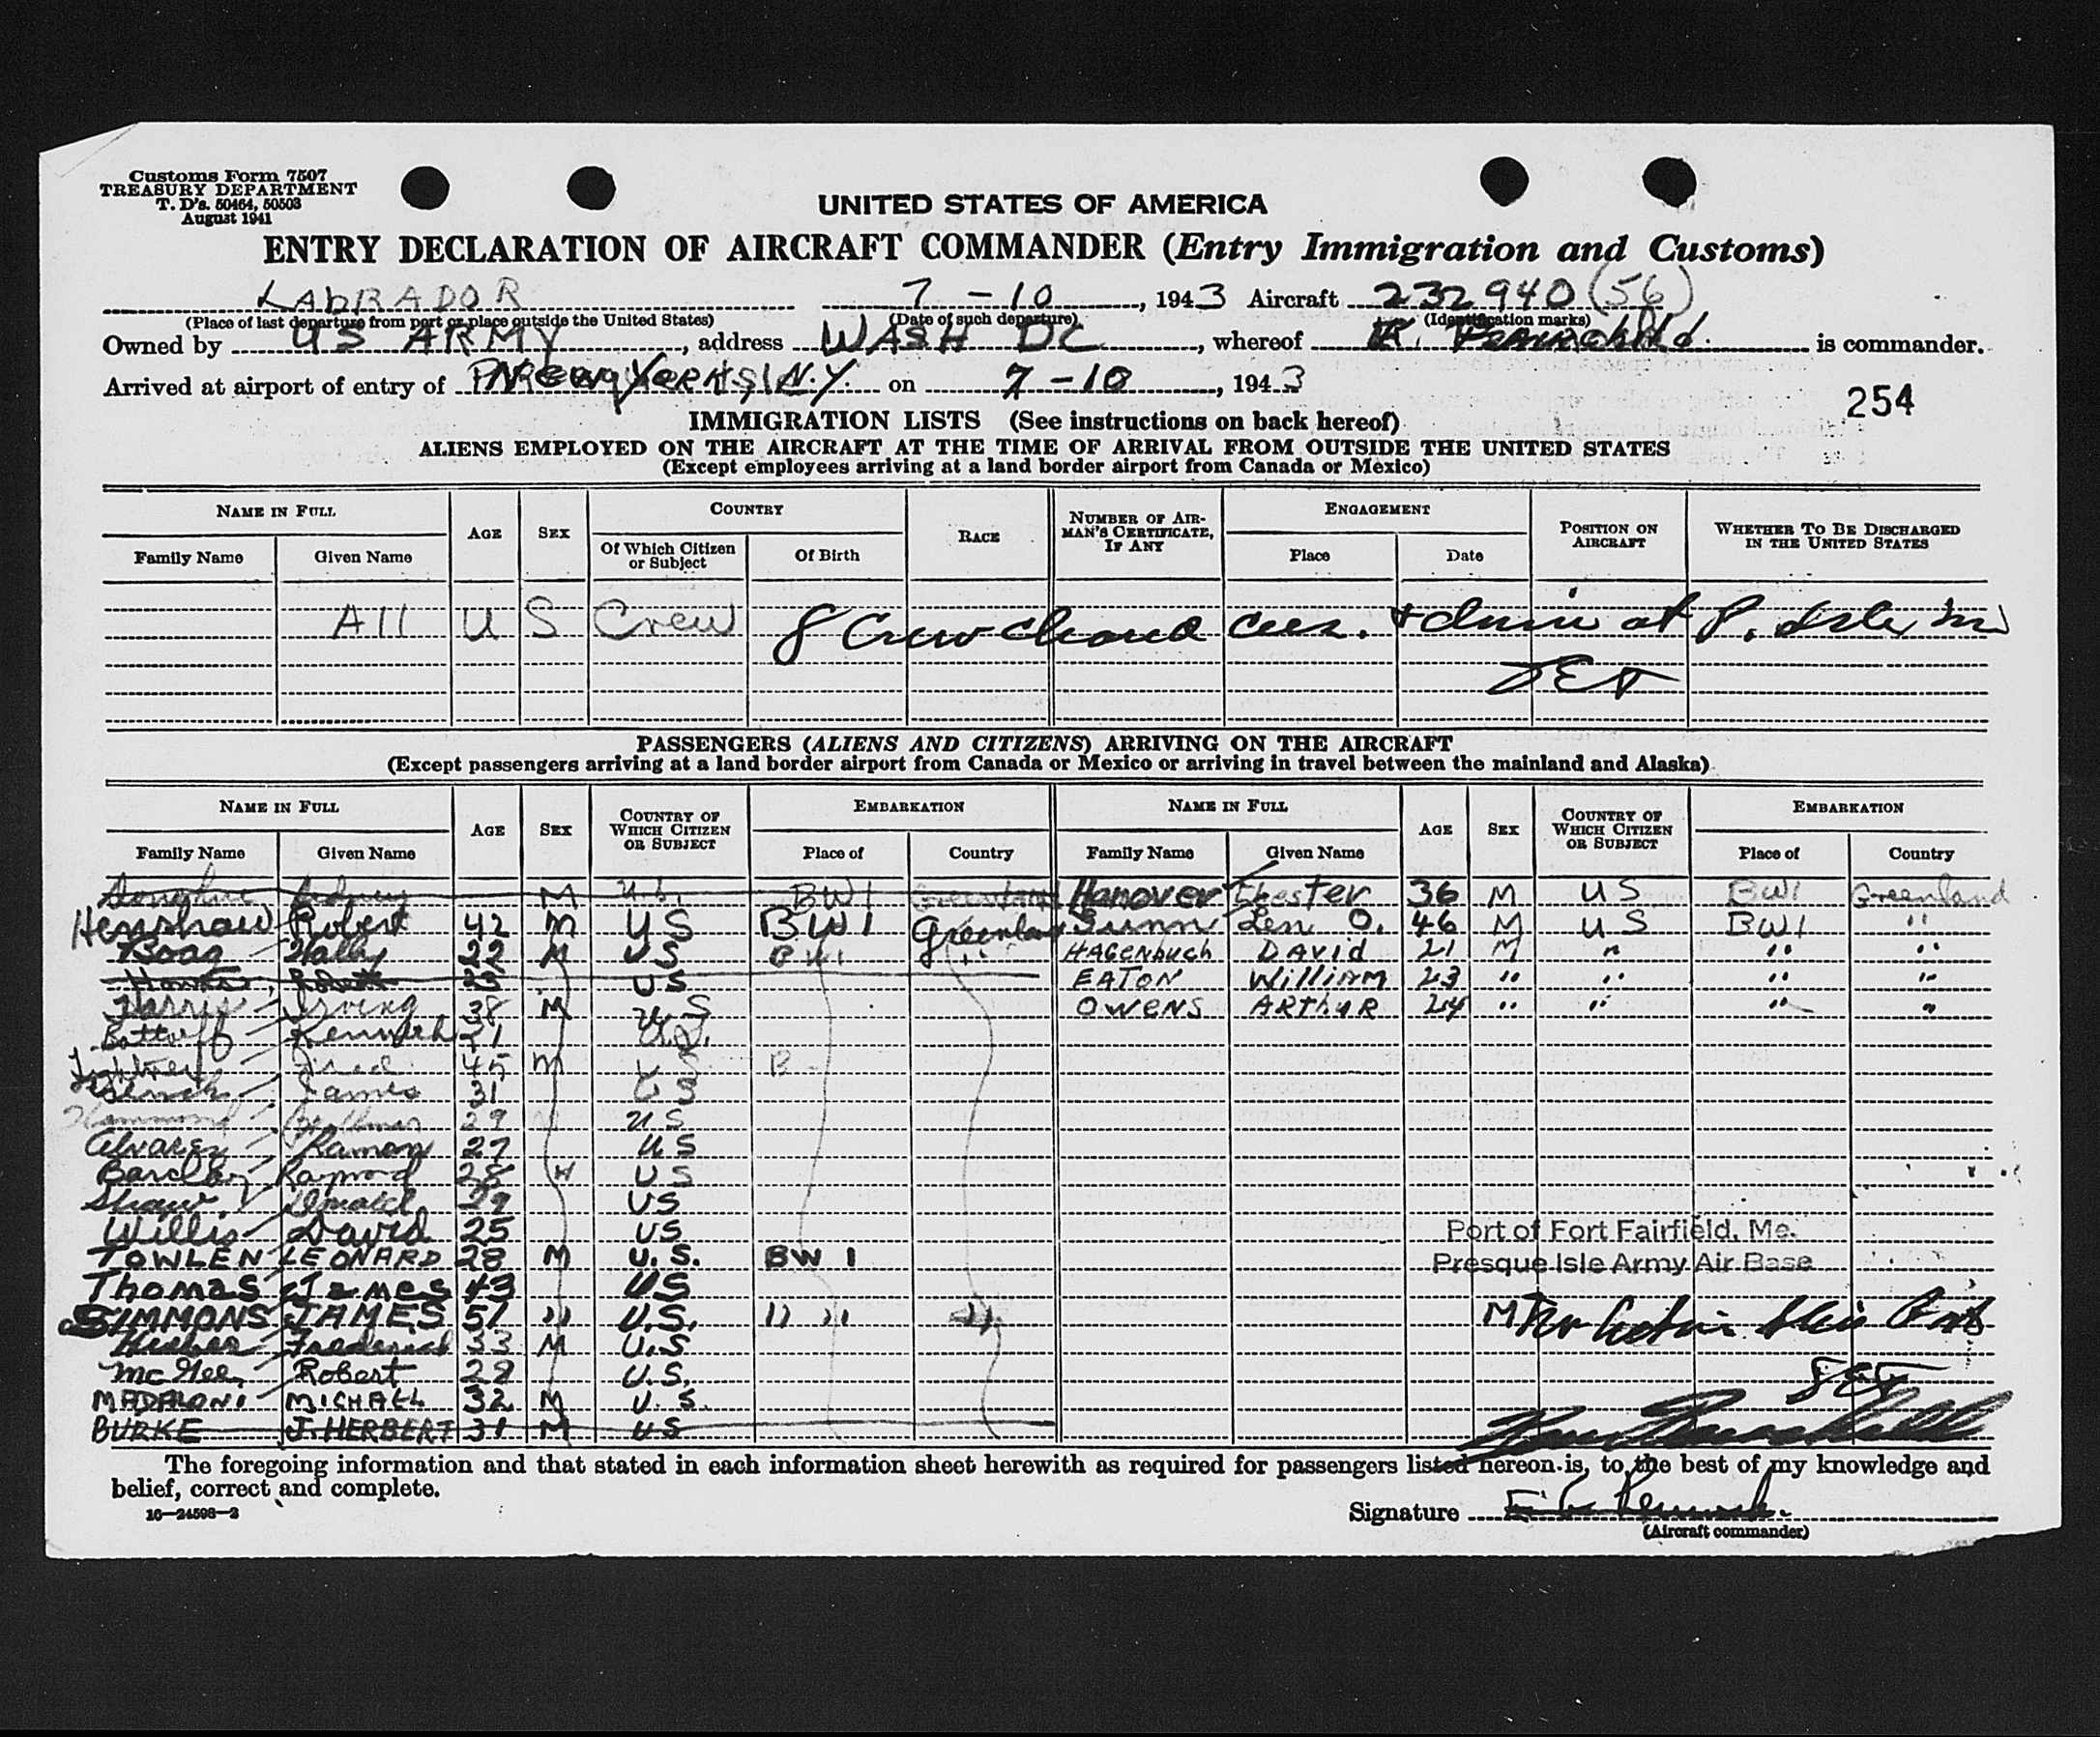 Customs Form 7507
TREASURY DEPARTMENT
T. D's. 50464, 50503
August 1941
UNITED STATES OF AMERICA
ENTRY DECLARATION OF AIRCRAFT COMMANDER (Entry Immigration and Customs)
LAbRADOR 7-10, 1943 Aircraft 232940 (56)
(Place of last departure from port or place outside the United States) (Date of such departure) (Identification marks)
Owned by US ARMY, address WASH DC, whereof is commander.
Arrived at airport of entry of N.Y. on 7-10, 1943
254
IMMIGRATION LISTS (See instructions on back hereof)
ALIENS EMPLOYED ON THE AIRCRAFT AT THE TIME OF ARRIVAL FROM OUTSIDE THE UNITED STATES
(Except employees arriving at a land border airport from Canada or Mexico)
NAME IN FULL AGE SEX COUNTRY RACE NUMBER OF AIRMAN'S CERTIFICATE, IF ANY ENGAGEMENT POSITION ON AIRCRAFT WHETHER TO BE DISCHARGED IN THE UNITED STATES
Family Name Given Name Of Which Citizen or Subject Of Birth Place Date
All US Crew 8 Crew at P. Isle
PASSENGERS (ALIENS AND CITIZENS) ARRIVING ON THE AIRCRAFT
(Except passengers arriving at a land border airport from Canada or Mexico or arriving in travel between the mainland and Alaska)
NAME IN FULL AGE SEX COUNTRY OF WHICH CITIZEN OR SUBJECT EMBARKATION NAME IN FULL AGE SEX COUNTRY OF WHICH CITIZEN OR SUBJECT EMBARKATION
Family Name Given Name Place of Country Family Name Given Name Place of Country
Sidney M U.S. BW1 Greenland Hanover Chester 36 M US BW1 Greenland
Henshaw Robert 42 M US BW1 Greenland Gunn Len O. 46 M US BW1 "
Boag Wally 22 M US BW1 " HAGENbUCH DAVID 21 M " " "
US EATON WilliAM 23 " " " "
Harris Irving 38 M US OWENS ARThUR 24 " " " "
Kenneth 21 U.S.
Lightner Fred 45 M US B
James 31 US
Hammond 29 US
Alvarez Ramon 27 US
Barclay Raymond 28 M US
Shaw Donald 29 US
Willis David 25 US
TOWLEN LEONARD 28 M U.S. BW1
Thomas James 43 US
SIMMONS JAMES 51 " U.S. " " "
Frederick 33 M U.S
McGee Robert 28 U.S.
MADALONI MICHAEL 32 M U.S.
BURKE J. HERBERT 31 M US
Port of Fort Fairfield, Me.
Presque Isle Army Air Base
The foregoing information and that stated in each information sheet herewith as required for passengers listed hereon is, to the best of my knowledge and
belief, correct and complete.
16—24598-2
Signature
(Aircraft commander)